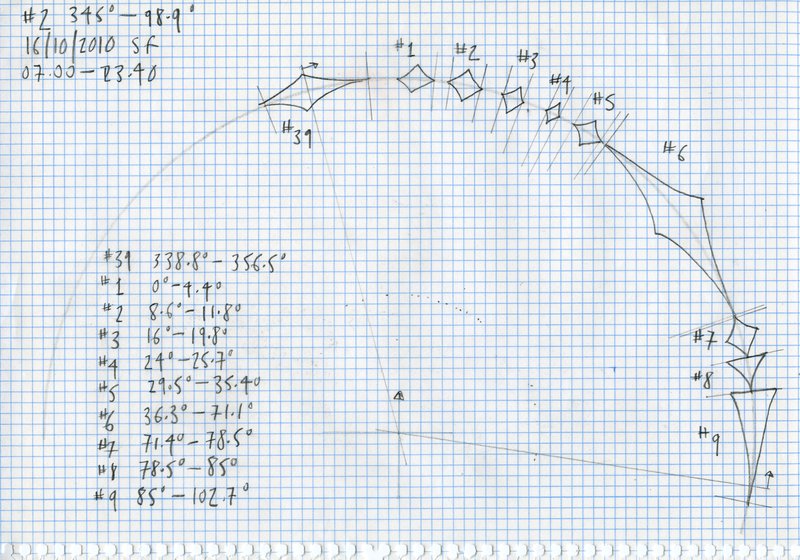 #2 345° - 98.9°
16/10/2010 SF
07.00 - 23.40
#1
#2
#3
#4
#5
#39
#6
#39 338.8° - 356.5°
#1 0° - 4.4°
#2 8.6° - 11.8°
#3 16° - 19.8°
#4 24° - 25.7°
#5 29.5° - 35.40
#6 36.3° - 71.1°
#7 71.4° - 78.5°
#8 78.5° - 85°
#9 85° - 102.7°
#7
#8
#9